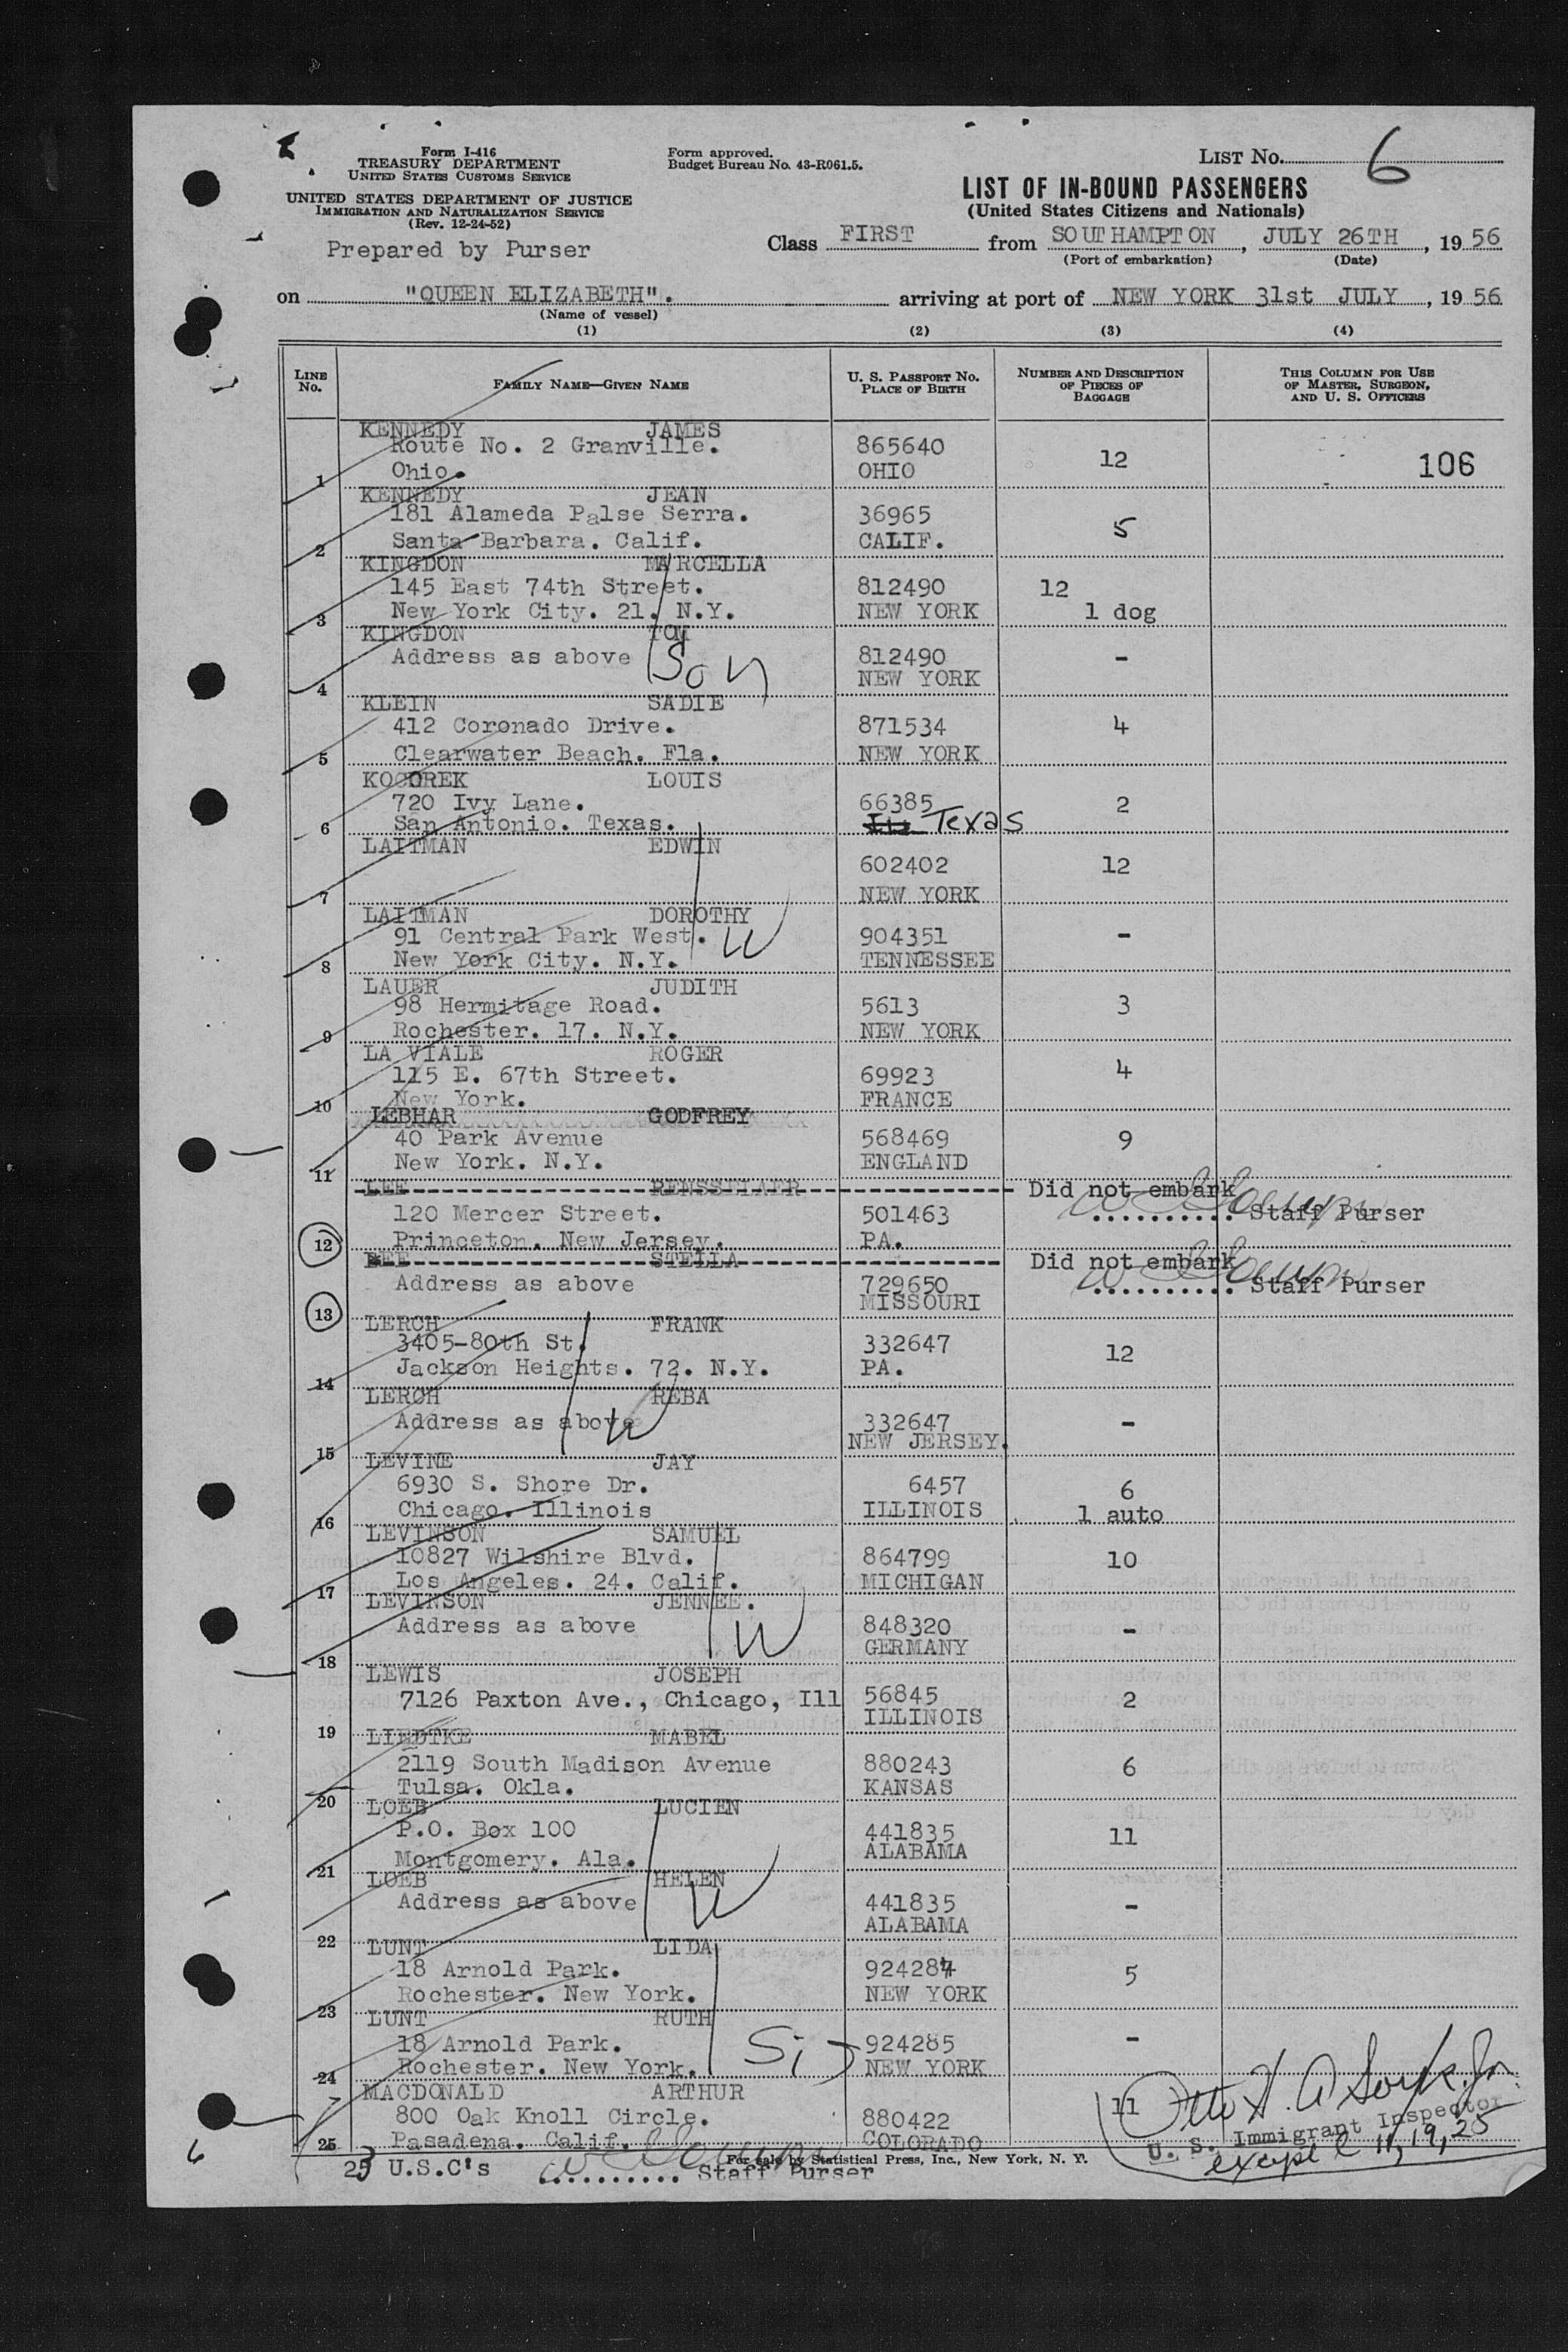 Form I-416
TREASURY DEPARTMENT
UNITED STATES CUSTOMS SERVICE
UNITED STATES DEPARTMENT OF JUSTICE
IMMIGRATION AND NATURALIZATION SERVICE
(Rev. 12-24-52)
Prepared by Purser
Form approved.
Budget Bureau No. 43-R061.5.
LIST No. 6
LIST OF IN-BOUND PASSENGERS
(United States Citizens and Nationals)
Class FIRST from SOUTHAMPTON, JULY 26TH, 1956
(Port of embarkation) (Date)
on "QUEEN ELIZABETH". arriving at port of NEW YORK 31st JULY, 1956
(Name of vessel)
(1) (2) (3) (4)
LINE No. FAMILY NAME—GIVEN NAME U. S. PASSPORT No. PLACE OF BIRTH NUMBER AND DESCRIPTION OF PIECES OF BAGGAGE THIS COLUMN FOR USE OF MASTER, SURGEON, AND U. S. OFFICERS
KENNEDY JAMES
Route No. 2 Granville. 865640 12 106
1 Ohio. OHIO
KENNEDY JEAN
181 Alameda Palse Serra. 36965 5
2 Santa Barbara. Calif. CALIF.
KINGDON MARCELLA
145 East 74th Street. 812490 12
3 New York City. 21. N.Y. NEW YORK 1 dog
KINGDON TOM
Address as above Son 812490 -
4 NEW YORK
KLEIN SADIE
412 Coronado Drive. 871534 4
5 Clearwater Beach. Fla. NEW YORK
KOCOREK LOUIS
720 Ivy Lane. 66385 2
6 San Antonio. Texas. Ill Texas
LAITMAN EDWIN
602402 12
7 NEW YORK
LAITMAN DOROTHY
91 Central Park West. W 904351 -
8 New York City. N.Y. TENNESSEE
LAUER JUDITH
98 Hermitage Road. 5613 3
9 Rochester. 17. N.Y. NEW YORK
LA VIALE ROGER
115 E. 67th Street. 69923 4
10 New York. FRANCE
LEBHAR GODFREY
40 Park Avenue 568469 9
11 New York. N.Y. ENGLAND
LEE RENSSELAER Did not embark
120 Mercer Street. 501463 .......... Staff Purser
12 Princeton. New Jersey. PA.
LEE STELLA Did not embark
Address as above 729650 .......... Staff Purser
13 MISSOURI
LERCH FRANK
3405-80th St. 332647 12
14 Jackson Heights. 72. N.Y. PA.
LERCH REBA
Address as above W 332647 -
15 NEW JERSEY.
LEVINE JAY
6930 S. Shore Dr. 6457 6
16 Chicago. Illinois ILLINOIS 1 auto
LEVINSON SAMUEL
10827 Wilshire Blvd. 864799 10
17 Los Angeles. 24. Calif. MICHIGAN
LEVINSON JENNEE.
Address as above W 848320 -
18 GERMANY
LEWIS JOSEPH
7126 Paxton Ave., Chicago, Ill 56845 2
19 ILLINOIS
LIEDTKE MABEL
2119 South Madison Avenue 880243 6
20 Tulsa. Okla. KANSAS
LOEB LUCIEN
P.O. Box 100 441835 11
21 Montgomery. Ala. ALABAMA
LOEB HELEN
Address as above W 441835 -
22 ALABAMA
LUNT LIDA
18 Arnold Park. 924284 5
23 Rochester. New York. NEW YORK
LUNT RUTH
18 Arnold Park. Sis 924285 -
24 Rochester. New York. NEW YORK
MACDONALD ARTHUR
800 Oak Knoll Circle. 880422 11
25 Pasadena. Calif. COLORADO
U. S. Immigrant Inspector
except 11, 19, 25
6
23 U.S.C's .......... Staff Purser
For sale by Statistical Press, Inc., New York, N. Y.